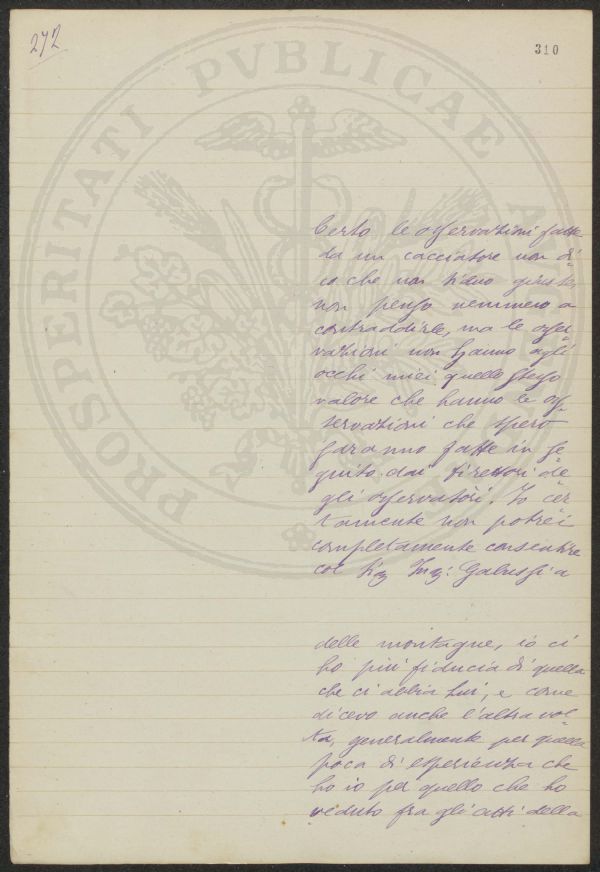 272
310
PROSPERITATI PVBLICAE
Certo le osservazioni fatte
da un cacciatore non di-
co che non siano giuste,
non penso nemmeno a
contraddirle, ma le osser-
vazioni non hanno agli
occhi miei quello stesso
valore che hanno le os-
servazioni che spero
saranno fatte in se-
guito dai Direttori de-
gli osservatori. Io cer-
tamente non potrei
completamente consentire
col Sig. Ing:
delle montagne, io ci
ho più fiducia di quella
che ci abbia Lui, e come
dicevo anche l'altra vol-
ta, generalmente per quella
poca di esperienza che
ho io per quello che ho
veduto fra gli atti della